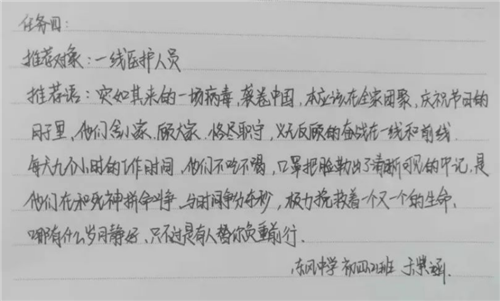 任务四:
推荐对象:一线医护人员
推荐语:突如其来的一场病毒,袭卷中国,本应该在全家团聚,庆祝节日的
日子里,他们舍小家、顾大家、恪尽职守,义无反顾的奋战在一线和前线.
每天九个小时的工作时间,他们不吃不喝,口罩把脸勒出了清晰可见的印记,是
他们在和死神拼命叫争,与时间争分夺秒,极力挽救着一个又一个的生命.
哪有什么岁月静好,只不过是有人替你负重前行.
东风中学初四21班